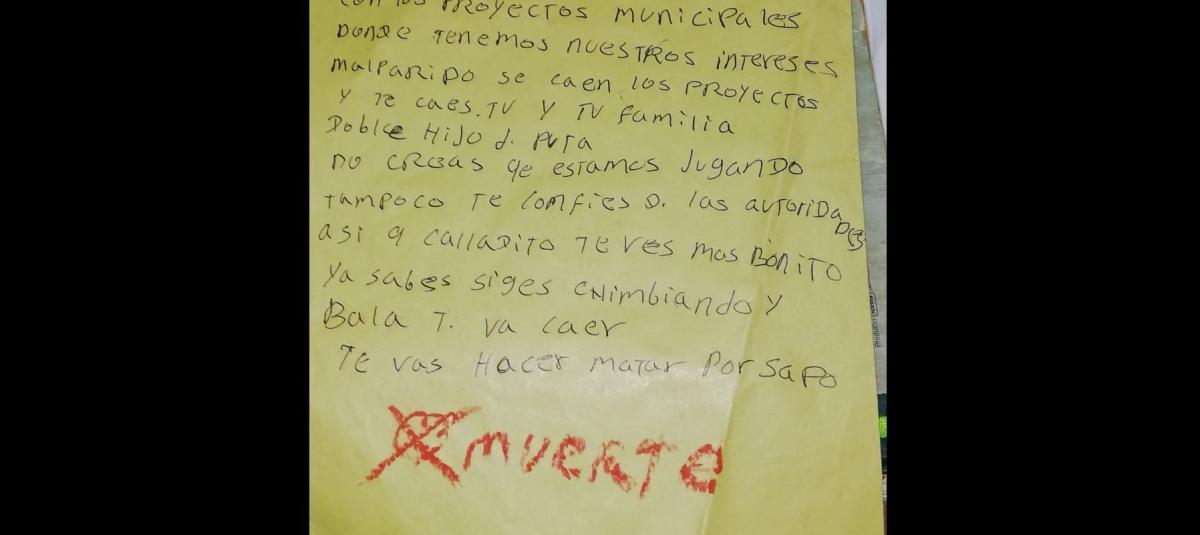 con los PROYECTOS municipales
DONDE TENEMOS NUESTROS INTERESES
malPARIDO se caen los PROYECTOS
Y Te caes. TU Y TU familia
DOBLE HIJO d. PUTA
no CREAS qe ESTAMOS JUGANDO
TAMPOCO Te Comfies D. las AUTORIDADES
asi q CALLADITO TE VES mas BONITO
Ya sabes siges CHimbiando y
Bala T. va caer
Te vas HACER MATAR POR SAPO
MUERTE
Producto